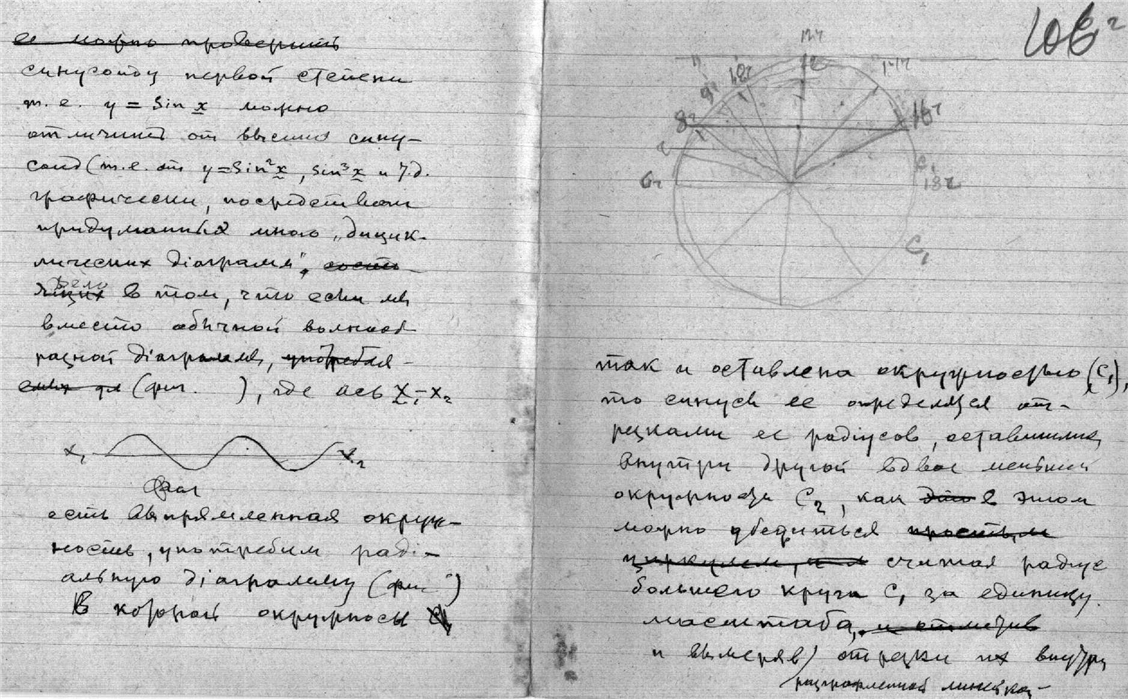 ее можно проверить
синусоиду первой степени
т.е. y = Sin x можно
отличить от высших сину-
соид (т.е. от y=Sin²x, Sin³x и т.д.
графически, посредством
придуманных мною „бицик-
лических діаграмм",
в том, что если мы
вместо обычной волнооб-
разной діаграммы, употребля-
емых дл (фиг. ), где ось X₁-X₂
X₁ X₂
Фиг
есть выпрямленная окруж-
ность, употребим раді-
альную діаграмму (фиг )
В которой окружность C₁
106²
12г
14г
10г
9г
8г
16г
6г
C₁
18г
C₁
так и оставлена окружностью (C₁),
то синусы ее определятся от-
резками ее радіусов, оставшимися
внутри другой вдвое меньшей
окружности C₂, как в этом
можно убедиться просты́м
циркулем, считая радіус
большего круга C₁ за единицу
масштаба, и отметив
и вымеряв) отрезки их внутри
разграфленной линейкой